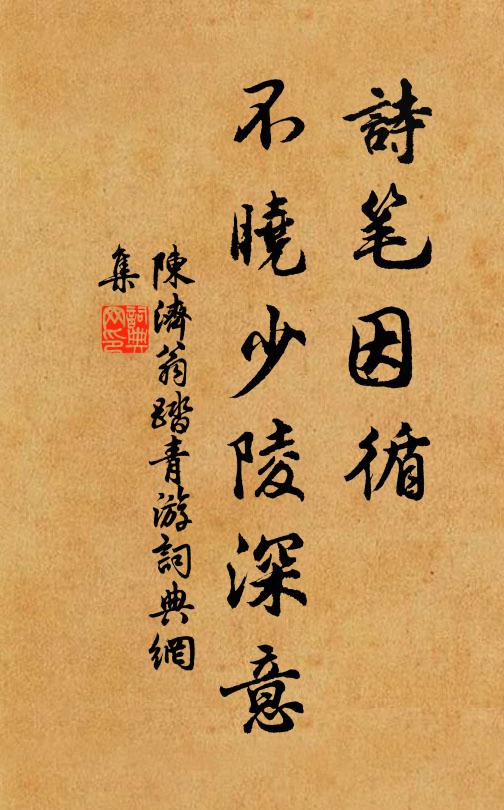 詩笔因循
不曉少陵深意
陳濟翁踏青游詞典網
集
詞典
网印